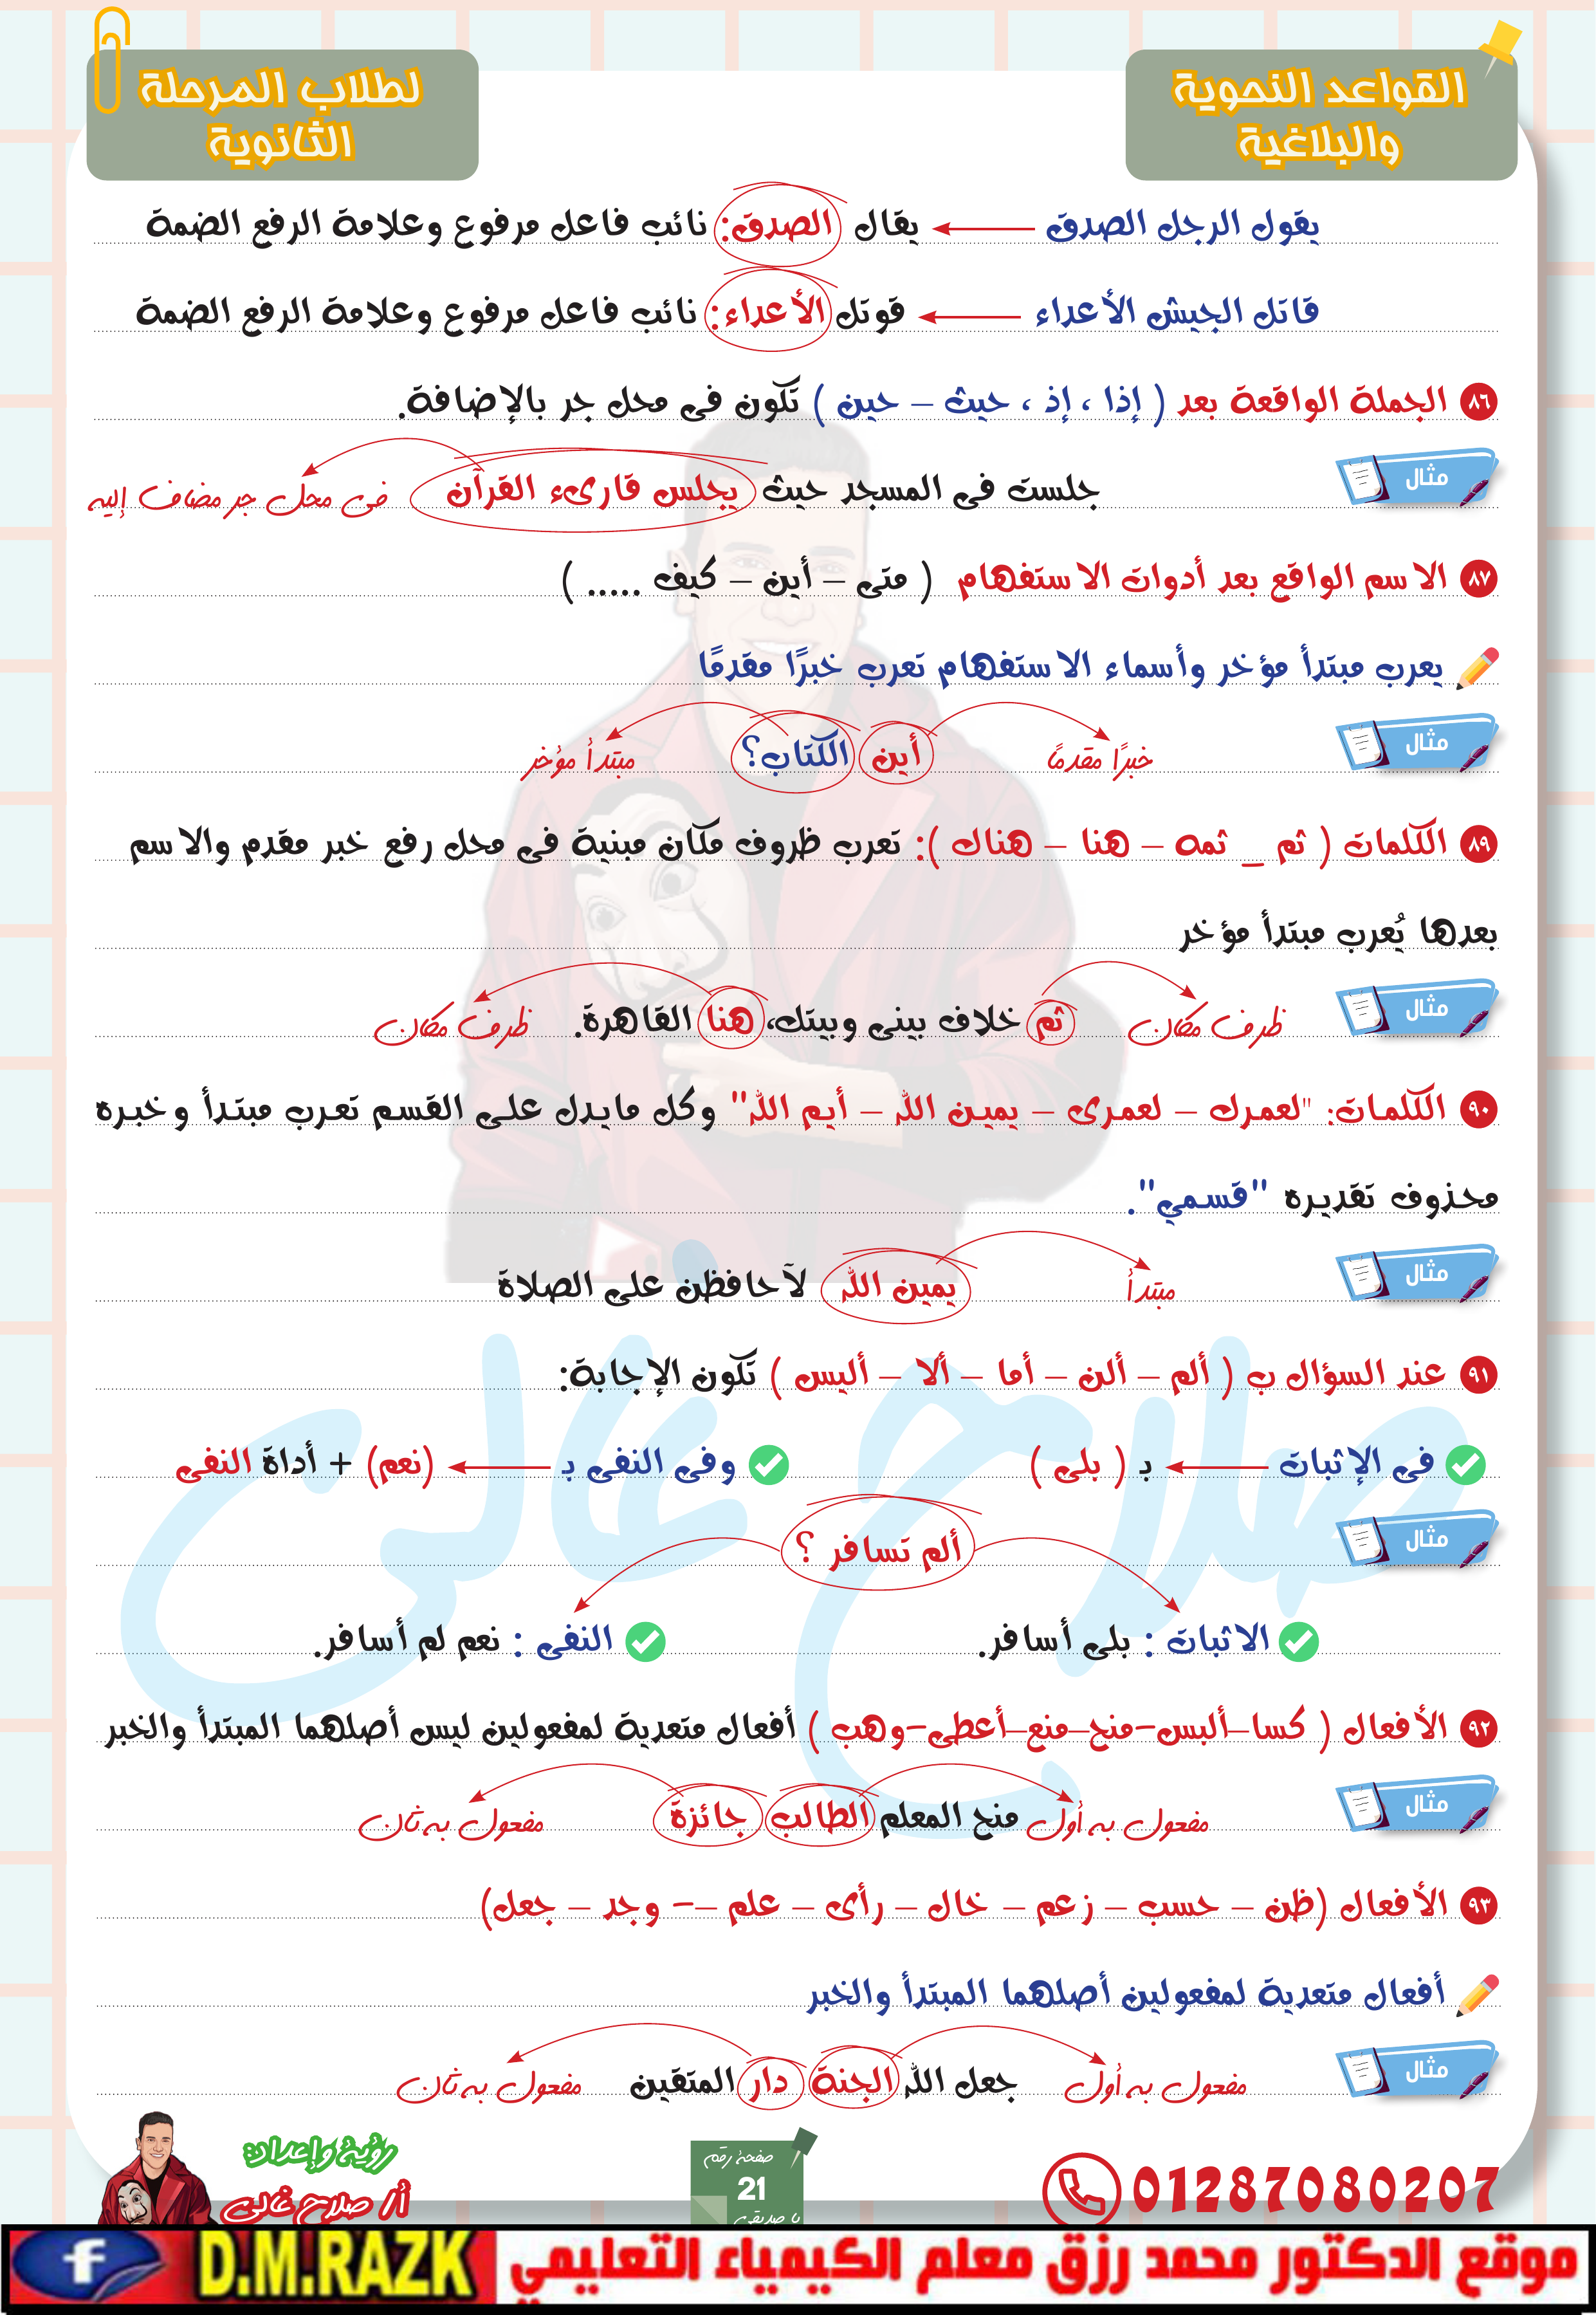 القواعد النحوية
والبلاغية
لطلاب المرحلة
الثانوية
يقول الرجل الصدق ← يقال الصدق: نائب فاعل مرفوع وعلامة الرفع الضمة
قاتل الجيش الأعداء ← قوتل الأعداء: نائب فاعل مرفوع وعلامة الرفع الضمة
٨٦ الجملة الواقعة بعد ( إذا ، إذ ، حيث – حين ) تكون فى محل جر بالإضافة.
مثال جلست فى المسجد حيث يجلس قارىء القرآن فى محل جر مضاف إليه
٨٧ الاسم الواقع بعد أدوات الاستفهام ( متى – أين – كيف ..... )
يعرب مبتدأ مؤخر وأسماء الاستفهام تعرب خبرًا مقدمًا
مثال خبرًا مقدمًا أين الكتاب؟ مبتدأ مؤخر
٨٩ الكلمات ( ثم _ ثمه – هنا – هناك ): تعرب ظروف مكان مبنية فى محل رفع خبر مقدم والاسم
بعدها يُعرب مبتدأ مؤخر
مثال ظرف مكان ثم خلاف بينى وبيتك، هنا القاهرة. ظرف مكان
٩٠ الكلمات: "لعمرك – لعمرى – يمين الله – أيم الله" وكل مايدل على القسم تعرب مبتدأ وخبره
محذوف تقديره "قسمي".
مثال مبتدأ يمين الله لآحافظن على الصلاة
٩١ عند السؤال ب ( ألم – ألن – أما – ألا – أليس ) تكون الإجابة:
فى الإثبات ← بـ ( بلى ) وفى النفى بـ ← (نعم) + أداة النفى
مثال ألم تسافر ؟
الاثبات : بلى أسافر. النفى : نعم لم أسافر.
٩٢ الأفعال ( كسا–ألبس–منح–منع–أعطى–وهب ) أفعال متعدية لمفعولين ليس أصلهما المبتدأ والخبر
مثال مفعول به أول منح المعلم الطالب جائزة مفعول به ثان
٩٣ الأفعال (ظن – حسب – زعم – خال – رأى – علم –- وجد – جعل)
أفعال متعدية لمفعولين أصلهما المبتدأ والخبر
مثال مفعول به أول جعل الله الجنة دار المتقين مفعول به ثان
صلاح غالى
01287080207
صفحة رقم
21
يا صديقى
رؤية وإعداد:
أ/ صلاح غالى
موقع الدكتور محمد رزق معلم الكيمياء التعليمي D.M.RAZK f